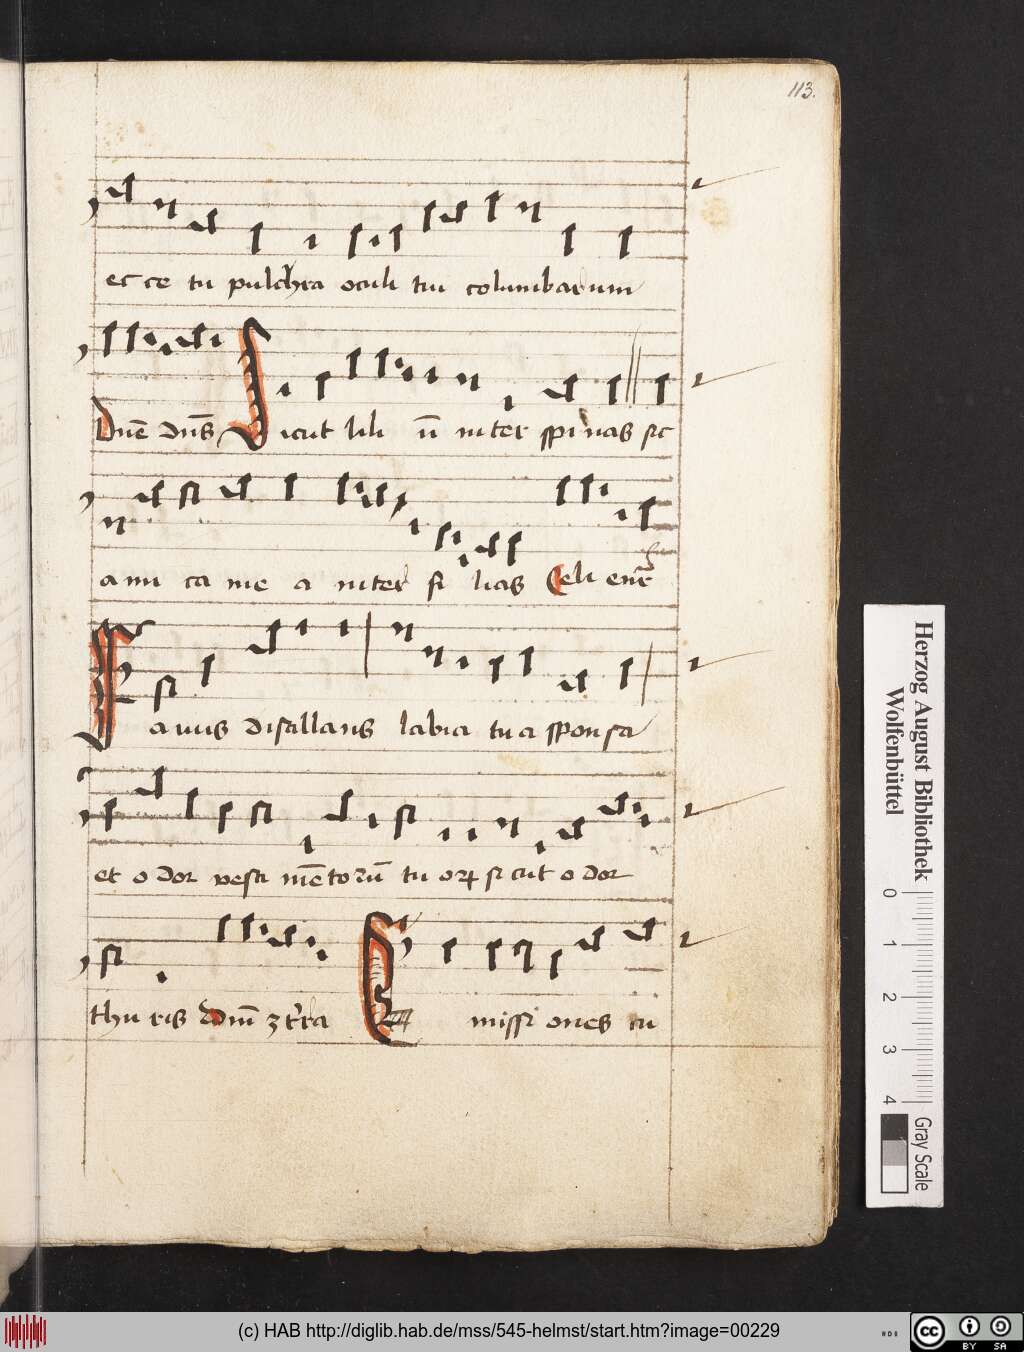 113.
ec ce tu pulchra oculi tui columbarum
Dnē dn̄s Sicut lili ū inter spinas sic
a mi ca me a inter fi lias Celi enr̄
Fauus distillans labia tua sponsa
et o dor vesti mēto rū tu oꝝ si cut o dor
thu ris
E missi ones tu
Herzog August Bibliothek
Wolfenbüttel
0 1 2 3 4
Gray Scale
(c) HAB http://diglib.hab.de/mss/545-helmst/start.htm?image=00229
cc BY SA